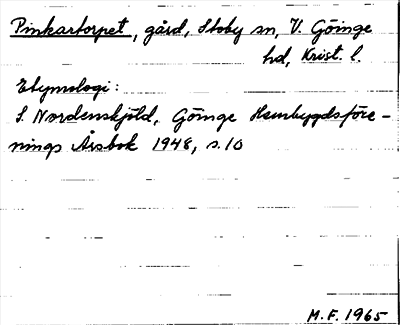 Pinkartorpet, gård, Stoby sn, V. Göinge
hd, Krist. l.
Etymologi:
S. Nordenskjöld, Göinge Hembygdsföre-
nings Årsbok 1948, s. 10
M.F. 1965